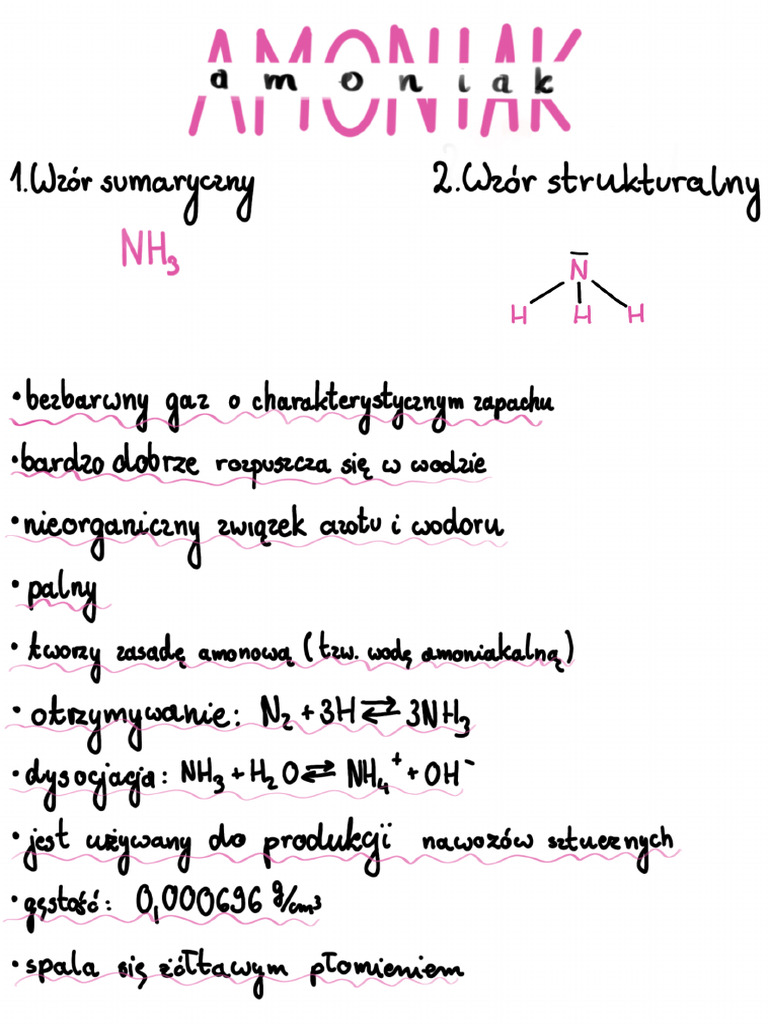 AMONIAK
amoniak
1. Wzór sumaryczny
2. Wzór strukturalny
NH₃
N
H H H
• bezbarwny gaz o charakterystycznym zapachu
• bardzo dobrze rozpuszcza się w wodzie
• nieorganiczny związek azotu i wodoru
• palny
• tworzy zasadę amonową (tzw. wodę amoniakalną)
• otrzymywanie: N₂ + 3H ⇄ 3NH₃
• dysocjacja: NH₃ + H₂O ⇄ NH₄⁺ + OH⁻
• jest używany do produkcji nawozów sztucznych
• gęstość: 0,000696 g/cm³
• spala się żółtawym płomieniem